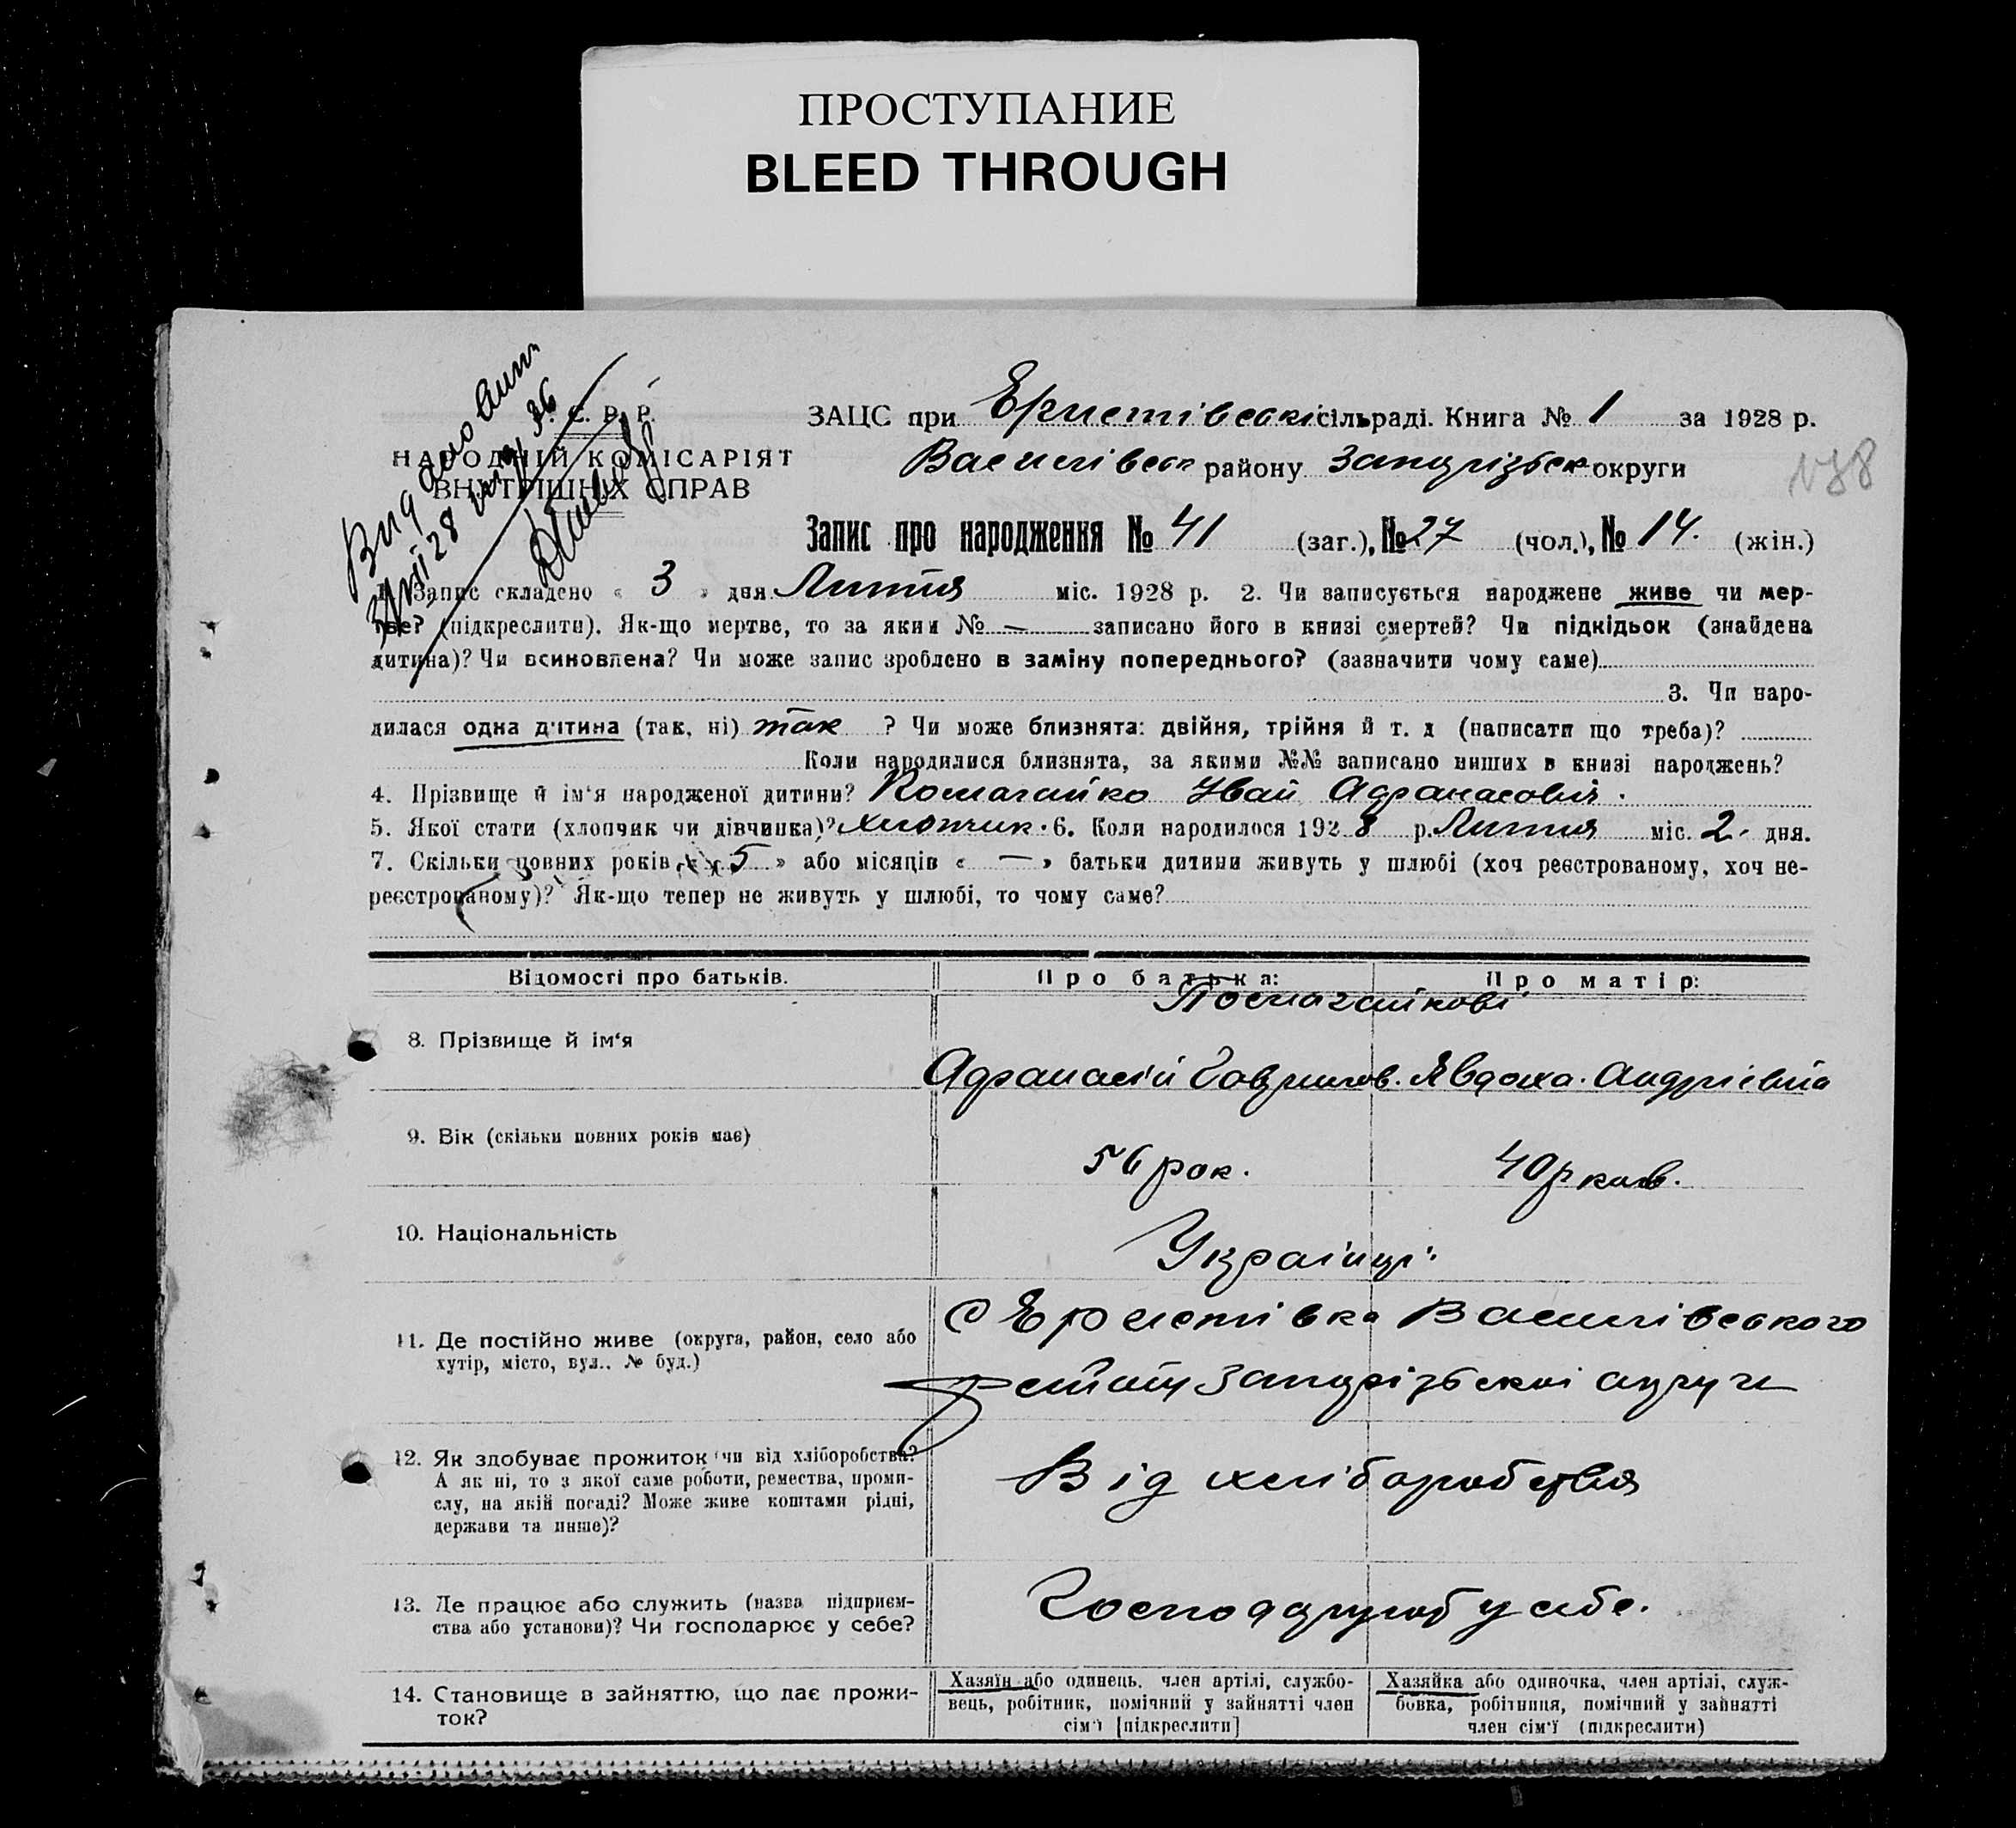 ПРОСТУПАНИЕ
BLEED THROUGH
С. Р. Р.
НАРОДНІЙ КОМІСАРІЯТ
ВНУТРІШНІХ СПРАВ
ЗАЦС при Еристівські сільраді. Книга № 1 за 1928 р.
Василівськ району Запорізьск округи
178
Запис про народження № 41 (заг.), № 27 (чол.), № 14. (жін.)
1. Запис складено « 3 » дня Липня міс. 1928 р. 2. Чи записується народжене живе чи мер-
тве? (підкреслити). Як-що мертве, то за яким № — записано його в книзі смертей? Чи підкідьок (знайдена
дитина)? Чи всиновлена? Чи може запис зроблено в заміну попереднього? (зазначити чому саме)
3. Чи наро-
дилася одна дитина (так, ні) так ? Чи може близнята: двійня, трійня й т. д (написати що треба)?
Коли народилися близнята, за якими №№ записано инших в книзі народжень?
4. Прізвище й ім'я народженої дитини? Иван Афанасовія.
5. Якої стати (хлопчик чи дівчинка)? хлопчик. 6. Коли народилося 1928 р. Липня міс. 2. дня.
7. Скільки повних років « 5 » або місяців « — » батьки дитини живуть у шлюбі (хоч реєстрованому, хоч не-
реєстрованому)? Як-що тепер не живуть у шлюбі, то чому саме?
Відомості про батьків. Про батька: Про матір:
8. Прізвище й ім'я
Афанасій Гаврилов. Явдоха. Андріевна
9. Вік (скільки повних років має)
56 рок. 40 рков.
10. Національність
Українці.
11. Де постійно живе (округа, район, село або
хутір, місто, вул.. № буд.)
с Еристівка Василівського
району Запорізької округи
12. Як здобуває прожиток (чи від хліборобства?
А як ні, то з якої саме роботи, ремества, проми-
слу, на якій посаді? Може живе коштами рідні,
держави та инше)?
Від хліборобства
13. Де працює або служить (назва підприєм-
ства або установи)? Чи господарює у себе?
у себе.
14. Становище в зайняттю, що дає прожи-
ток?
Хазяїн або одинець, член артілі, службо-
вець, робітник, помічний у зайнятті член
сім'ї [підкреслити]
Хазяйка або одиночка, член артілі, служ-
бовка, робітниця, помічний у зайнятті
член сім'ї (підкреслити)